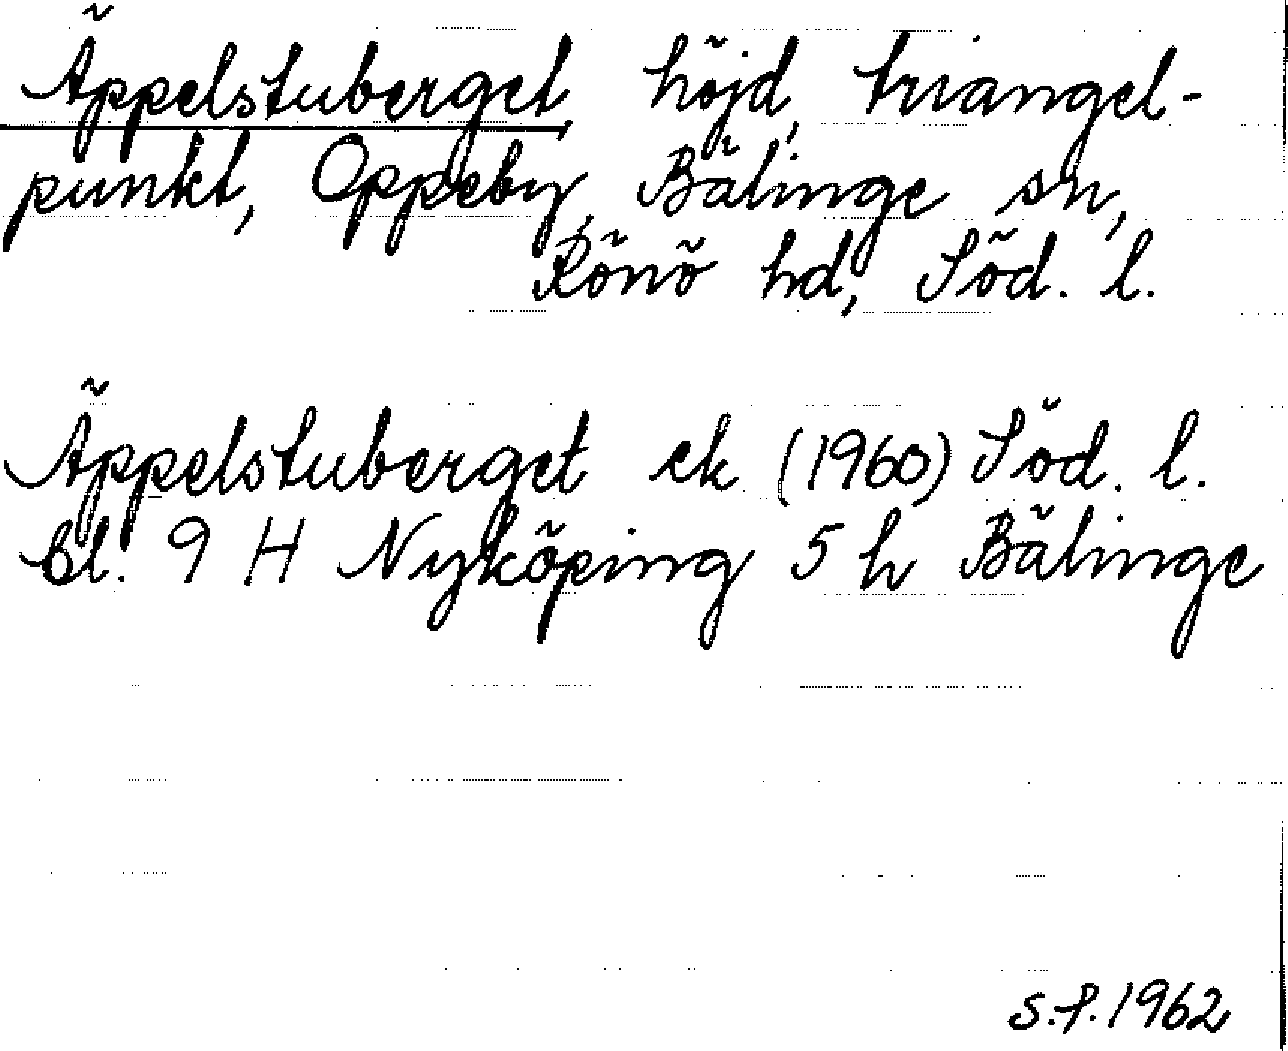 Äppelstuberget, höjd, triangel-
punkt, Oppeby, Bälinge sn,
Rönö hd, Söd. l.
Äppelstuberget ek (1960) Söd. l.
bl. 9 H Nyköping 5 h Bälinge
S.P. 1962